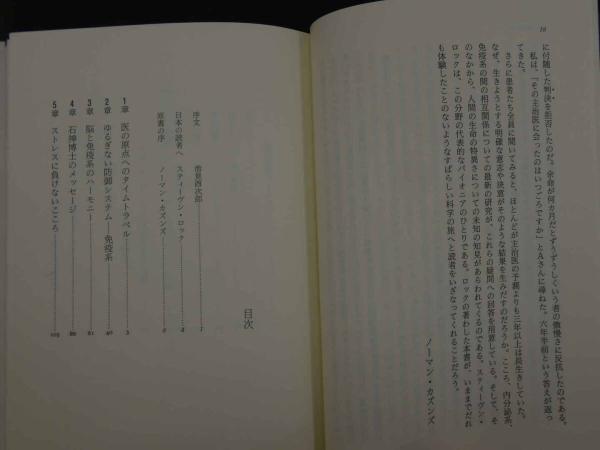 10
に付随した判決を拒否したのだ。余命が何カ月だとずうずうしくいう者の傲慢さに反抗したのである。
私は、「その主治医に会ったのはいつごろですか」とAさんに尋ねた。六年半前という答えが返っ
てきた。
さらに患者たち全員に聞いてみると、ほとんどが主治医の予測よりも三年以上は長生きしていた。
なぜ、生きようとする明確な意志や決意がそのような結果を生みだすのだろうか。こころ、内分泌系、
免疫系の間の相互関係についての最新の研究が、これらの疑問への回答を用意している。そして、そ
のなかから、人間の生命の特異さについての未知の知見があらわれてくるのである。スティーヴン・
ロックは、この分野の代表的なパイオニアのひとりである。ロックの著わした本書が、いままでだれ
も体験したことのないようなすばらしい科学の旅へと読者をいざなってくれることだろう。
ノーマン・カズンズ
目次
序文 池見酉次郎
日本の読者へ スティーヴン・ロック
原書の序 ノーマン・カズンズ
1章 医の原点へのタイムトラベル 3
2章 ゆるぎない防御システム―免疫系
3章 脳と免疫系のハーモニー
4章 石神博士のメッセージ
5章 ストレスに負けないこころ